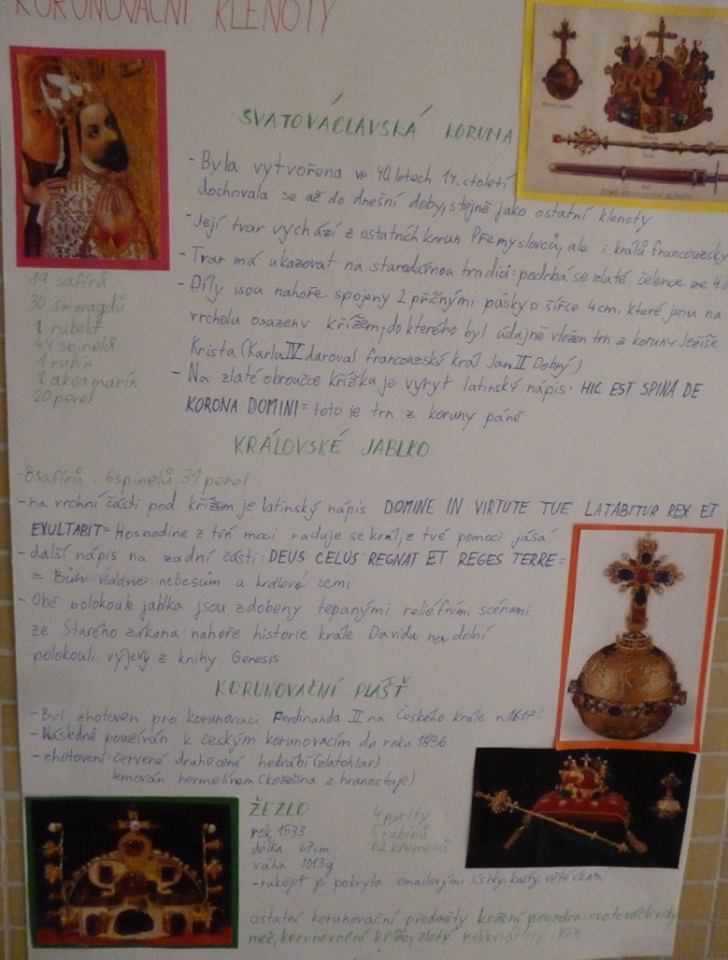 KORUNOVAČNÍ KLENOTY
SVATOVÁCLAVSKÁ KORUNA
- Byla vytvořena ve 40. letech 14. století
dochovala se až do dnešní doby, stejně jako ostatní klenoty
- Její tvar vychází z ostatních korun Přemyslovců, ale i králů francouzsky
- Tvar má ukazovat na starodávnou tradici: podobá se zlaté čelence ze
- Díly jsou nahoře spojeny 2 příčnými pásky o šířce 4 cm, které jsou na
vrcholu osazeny křížem, do kterého byl údajně vložen trn z koruny Ježíše
Krista (Karlu IV daroval francouzský král Jan II Dobrý)
- Na zlaté obroučce křížku je vyryt latinský nápis: HIC EST SPINA DE
KORONA DOMINI = toto je trn z koruny páně
19 safírů
30 smaragdů
1 rubelit
44 spinelů
1 rubín
akvamarín
20 perel
KRÁLOVSKÉ JABLKO
- 8 safírů, 6 spinelů, 31 perel
- na vrchní části pod křížem je latinský nápis DOMINE IN VIRTUTE TUE LATABITUR REX ET
EXULTABIT = Hospodine z tvé moci raduje se král, z tvé pomoci jásá
- další nápis na zadní části: DEUS CELUS REGNAT ET REGES TERRE =
= Bůh vládne nebesům a králové zemi
- Obě polokoule jablka jsou zdobeny tepanými reliéfními scénami
ze Starého zákona: nahoře historie krále Davida na dolní
polokouli výjevy z knihy Genesis
KORUNOVAČNÍ PLÁŠŤ
- Byl zhotoven pro korunovaci Ferdinanda II na českého krále r. 1617
- Následně používán k českým korunovacím do roka 1836
- zhotovení: červené drahocené hedvábí (zlatohlav)
lemován hermelínem (kožešina z hranostaje)
ŽEZLO
rok 1533
délka 67cm
váha 1013g
4 pyrity
5 rubínů
62 křemenů
- rukojeť je pokryta emailovými lístky, květy, větévkami
ostatní korunovační předměty kožení pouzdra, svatováclavský
meč, korunovační kříž, zlatý relikviářový kříž